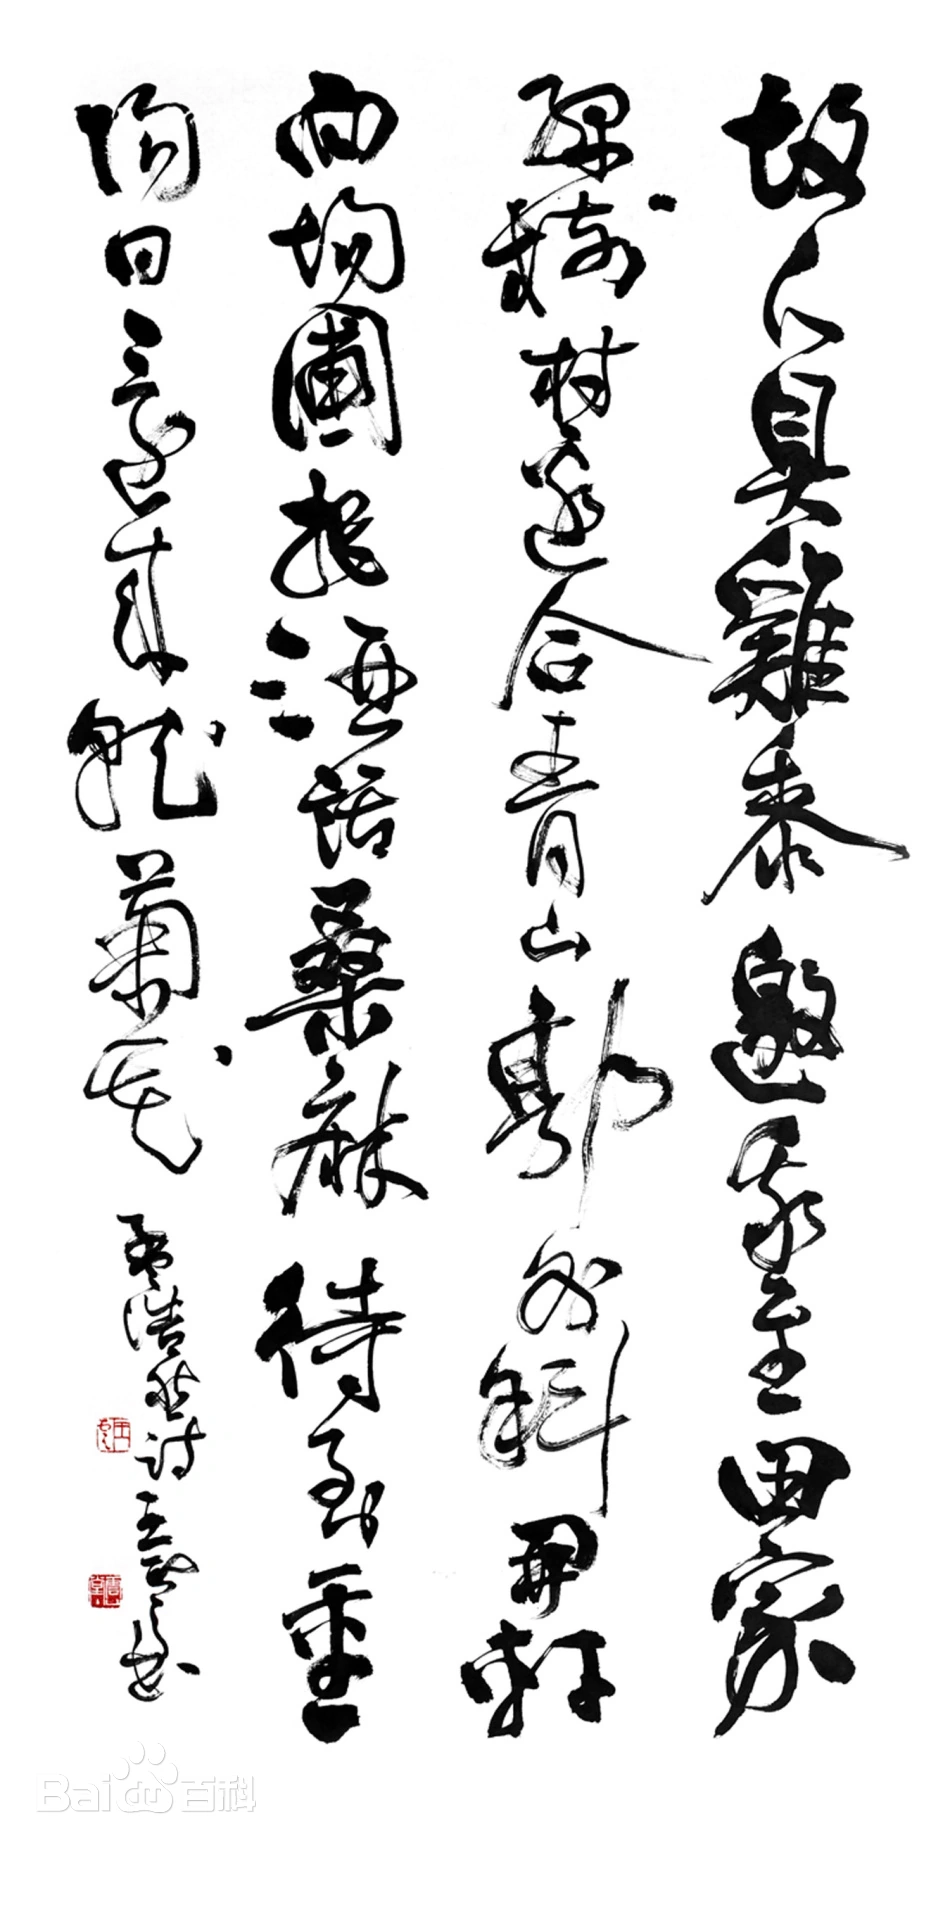 故人具雞黍邀我至田家
綠樹村邊合青山郭外斜開軒
面場圃把酒話桑麻待到重
陽日還來就菊花
孟浩然詩王
Bai du 百科